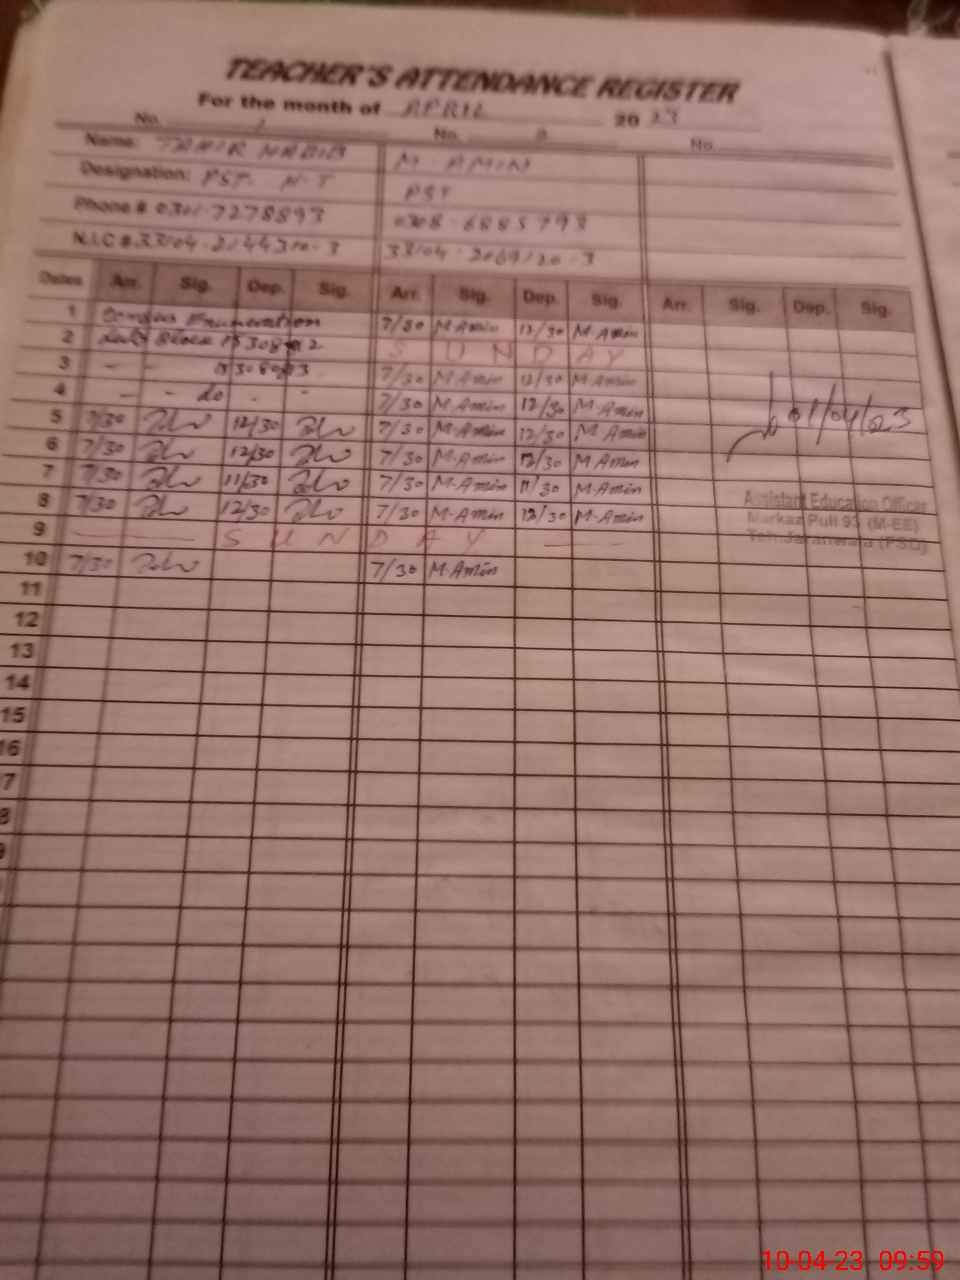 TEACHER'S ATTENDANCE REGISTER
For the month of APRIL 20 23
No. 1 No. 2 No.
Name: TAHIR HABIB M. AMIN
Designation: PST. H-T PST
Phone # 7278893 0308-6885793
N.I.C # 33104- -3 33104- -3
Dates Arr. Sig. Dep. Sig. Arr. Sig. Dep. Sig. Arr. Sig. Dep. Sig.
1 Census Enumeration 7/30 M.Amin 12/30 M.Amin
2 Block SUNDAY
3 - - 7/30 M.Amin 12/30 M.Amin
4 - - do - - 7/30 M.Amin 12/30 M.Amin
5 7/30 12/30 7/30 M.Amin 12/30 M.Amin
6 7/30 12/30 7/30 M.Amin 12/30 M.Amin
7 7/30 11/30 7/30 M.Amin 11/30 M.Amin
8 7/30 12/30 7/30 M.Amin 12/30 M.Amin
9 SUNDAY
10 7/30 7/30 M.Amin
01/04/23
Assistant Education Officer
Markaz Pull 93 (M-EE)
Teh: Jaranwala (FSD)
11
12
13
14
15
16
7
8
9
10-04-23 09:59